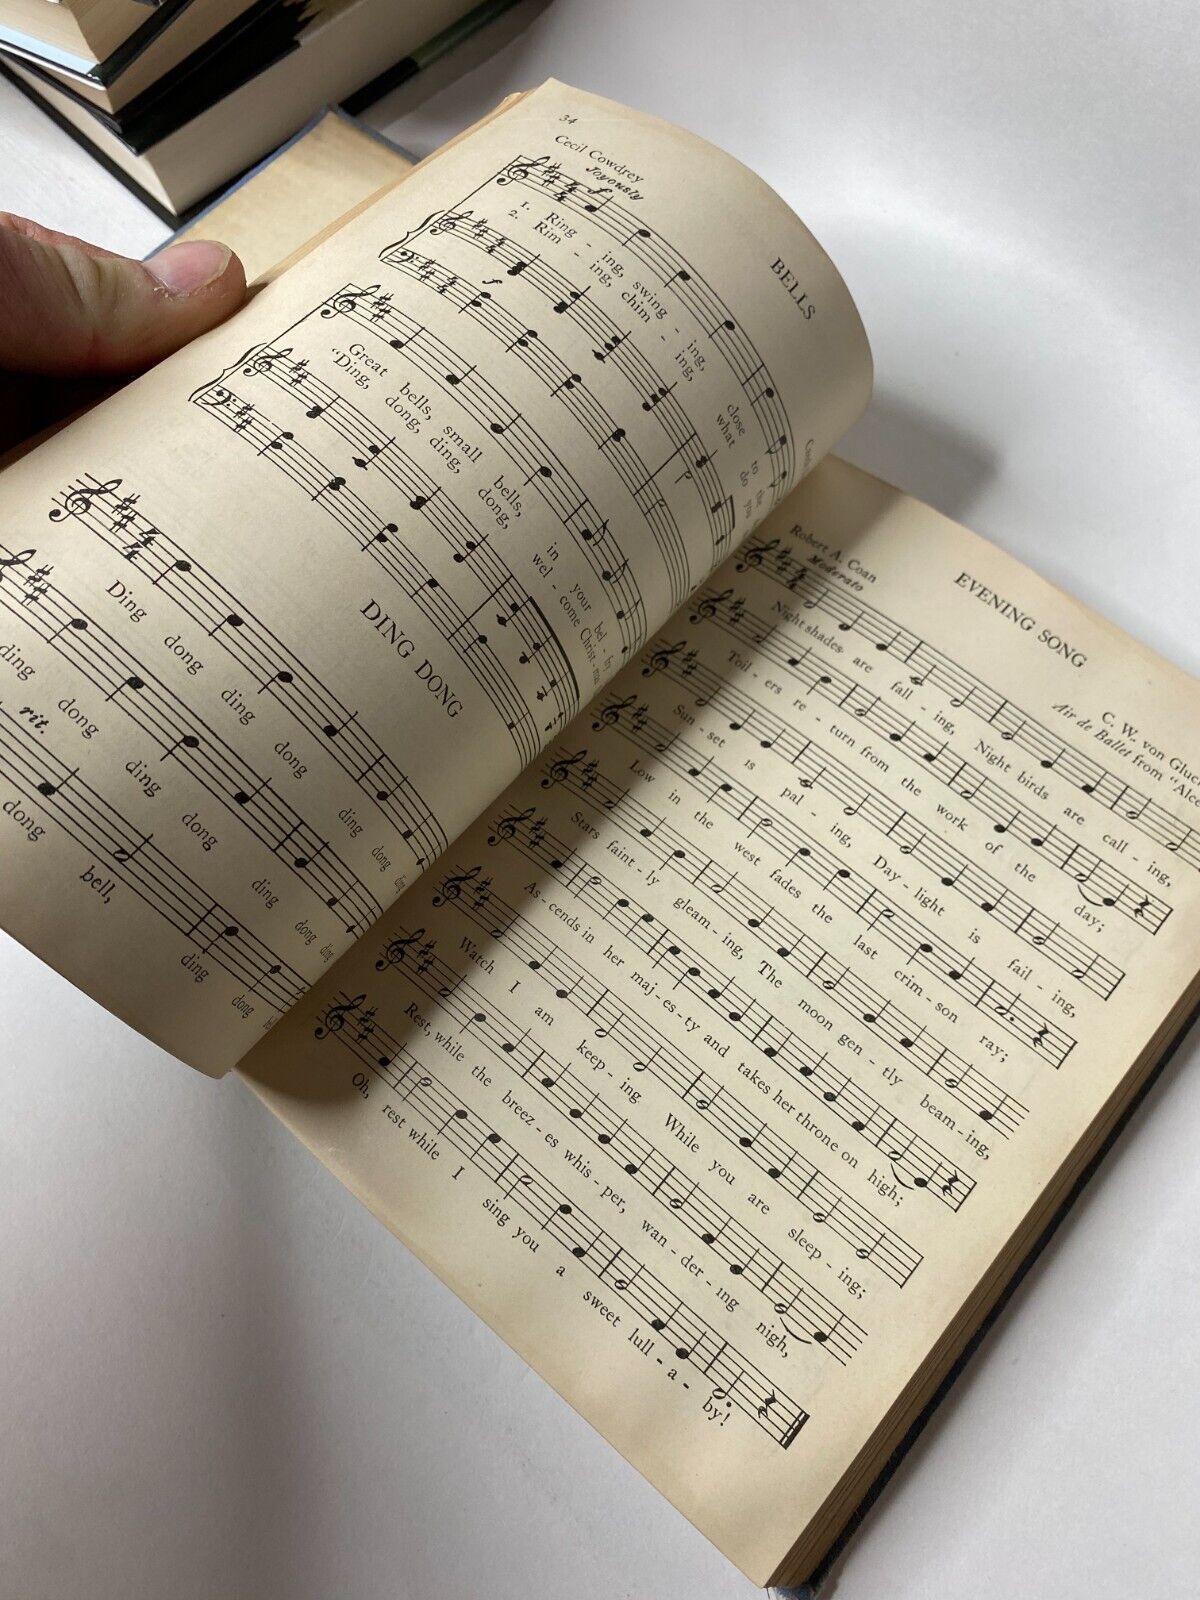 34
BELLS
Cecil Cowdrey
Joyously
f
1. Ring - ing, swing - ing, close to the
2. Rim - ing, chim - ing, what do you
f
Great bells, small bells, in your bel - fry
"Ding, dong, ding, dong, wel - come Christ-mas
DING DONG
Ding dong ding dong ding dong ding
ding dong ding dong ding dong ding
rit.
dong bell, ding dong
EVENING SONG
Robert A. Coan
C. W. von Gluck
Moderato
Air de Ballet from "Alce
Night shades are fall - ing, Night birds are call - ing,
Toil - ers re - turn from the work of the day;
Sun - set is pal - ing, Day - light is fail - ing,
Low in the west fades the last crim - son ray;
Stars faint - ly gleam - ing, The moon gen - tly beam - ing,
As - cends in her maj - es - ty and takes her throne on high;
Watch I am keep - ing While you are sleep - ing;
Rest, while the breez - es whis - per, wan - der - ing nigh,
Oh, rest while I sing you a sweet lull - a - by!